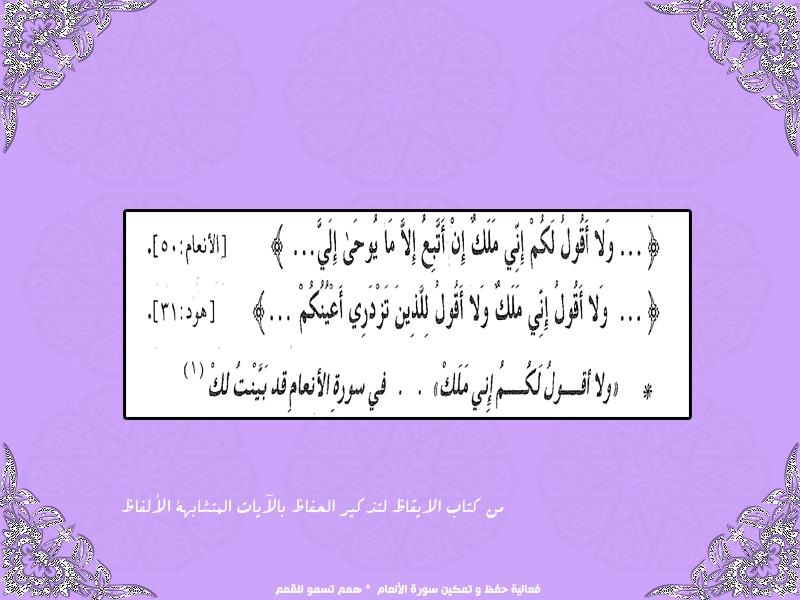 ﴿... وَلا أَقُولُ لَكُمْ إِنِّي مَلَكٌ إِنْ أَتَّبِعُ إِلاَّ مَا يُوحَىٰ إِلَيَّ... ﴾ [الأنعام:٥٠].
﴿... وَلا أَقُولُ إِنِّي مَلَكٌ وَلا أَقُولُ لِلَّذِينَ تَزْدَرِي أَعْيُنُكُمْ ...﴾ [هود:٣١].
* «ولا أقــولُ لَكُــــمُ إِني مَلَكْ» . . في سورةِ الأنعامِ قد بَيَّنْتُ لكْ (١)
من كتاب الايقاظ لتذكير الحفاظ بالآيات المتشابهة الألفاظ
فعالية حفظ و تمكين سورة الأنعام * همم تسمو للقمم